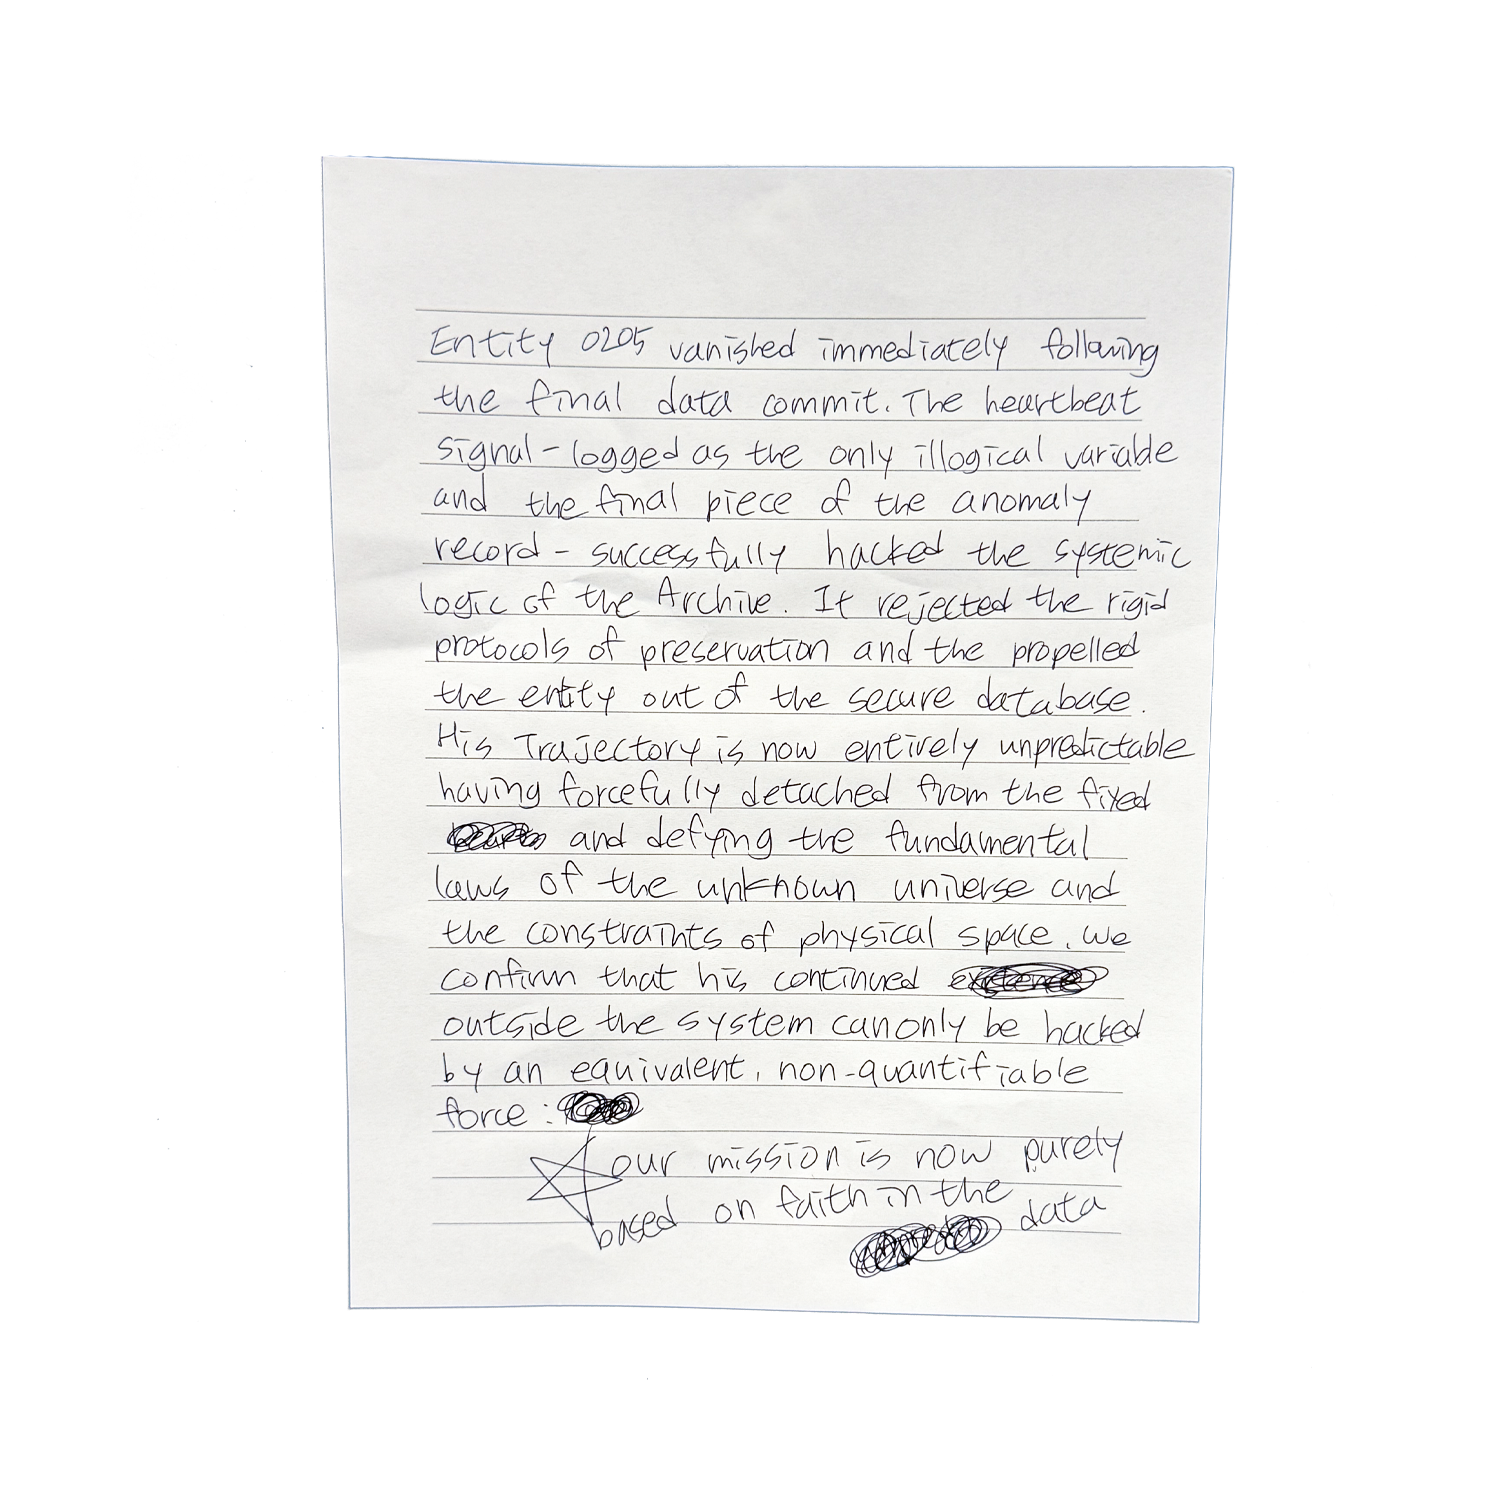 Entity 0205 vanished immediately following
the final data commit. The heartbeat
signal - logged as the only illogical variable
and the final piece of the anomaly
record - successfully hacked the systemic
logic of the Archive. It rejected the rigid
protocols of preservation and the propelled
the entity out of the secure database.
His Trajectory is now entirely unpredictable
having forcefully detached from the fixed
and defying the fundamental
laws of the unknown universe and
the constraints of physical space. We
confirm that his continued
outside the system can only be hacked
by an equivalent, non-quantifiable
force:
our mission is now purely
based on faith in the
data